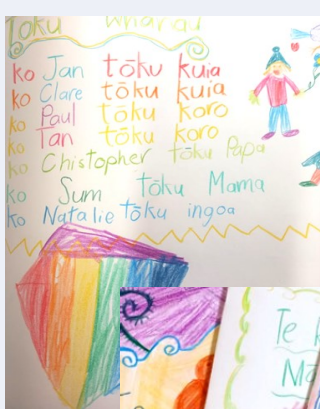 Toku Whanau
ko Jan tōku kuia
ko Clare tōku kuia
ko Paul tōku koro
ko Tan tōku koro
ko Chistopher tōku Papa
ko Sum tōku Mama
ko Natalie tōku ingoa
Te